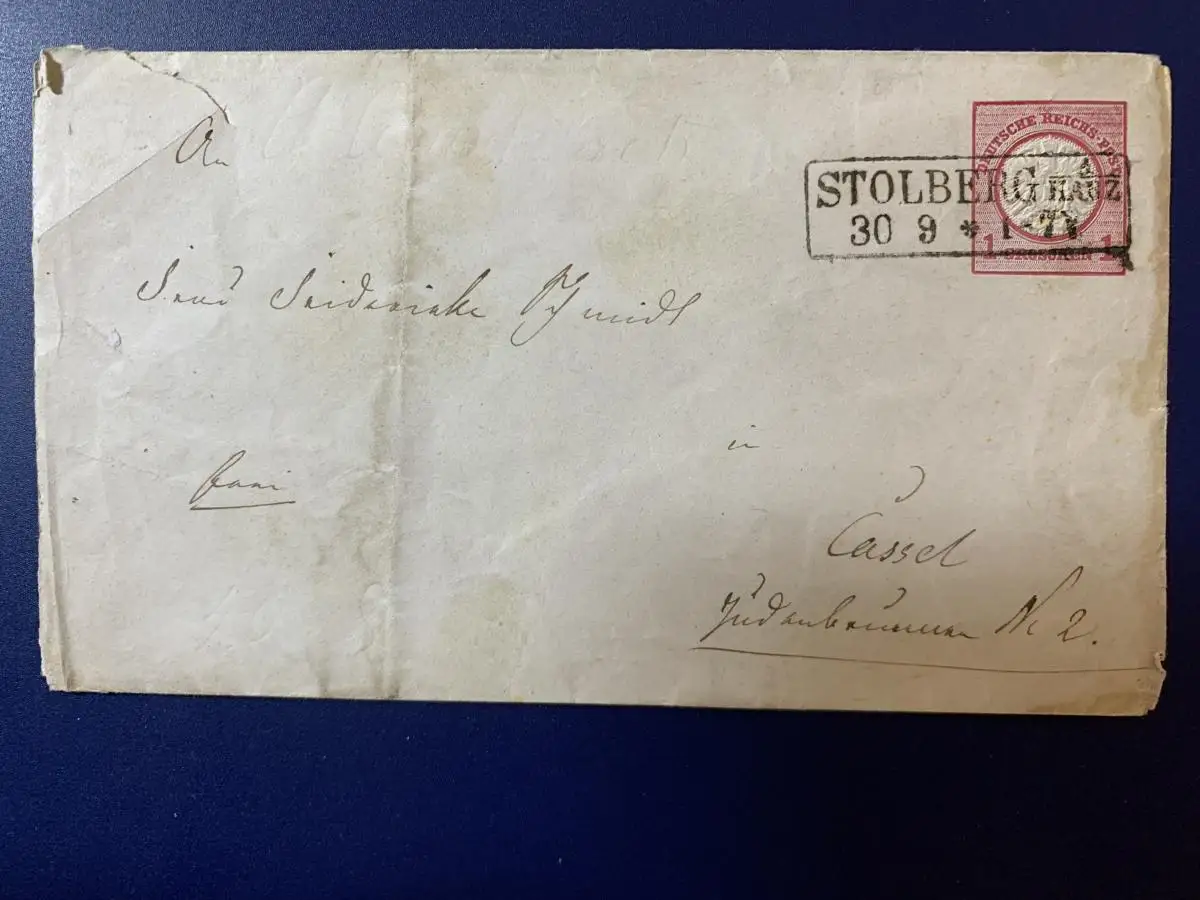 DEUTSCHE REICHS-POST
STOLBERG HARZ
30 9 * 1-7
1 GROSCHEN 1
An
Frau Friderieke Schmidt
franco
in
Cassel
Judenbrunnen No 2.